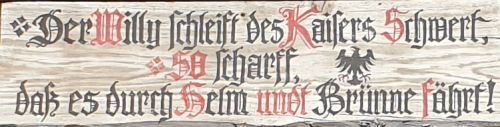 Der Willy schleift des Kaisers Schwert,
so scharff,
daß es durch Helm undt Brünne fährt!